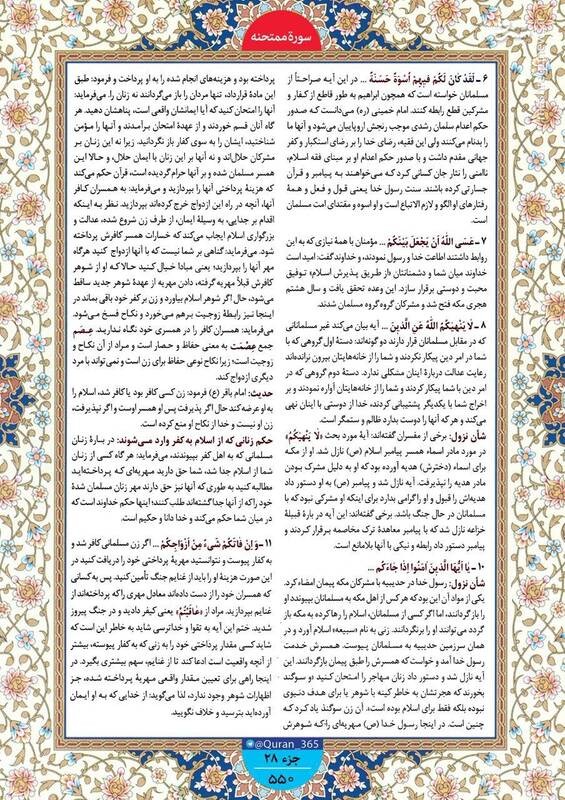 سورهٔ ممتحنه
۶ - لَقَدْ كَانَ لَكُمْ فِيهِمْ أُسْوَةٌ حَسَنَةٌ ... در این آیه صراحتاً از
مسلمانان خواسته است که همچون ابراهیم به طور قاطع از کفار و
مشرکین قطع رابطه کنند. امام خمینی (ره) می‌دانست که صدور
حکم اعدام سلمان رشدی موجب رنجش اروپاییان می‌شود و آنها ما
را بدنام می‌کنند ولی این فقیه، رضای خدا را بر رضای استکبار و کفر
جهانی مقدم داشت و با صدور حکم اعدام او بر مبنای فقه اسلام،
ناامنی را نثار جان کسانی کرد که می‌خواهند به پیامبر و قرآن
جسارتی کرده باشند. سنت رسول خدا یعنی قول و فعل و همهٔ
رفتارهای او الگو و لازم الاتباع است و او اسوه و مقتدای امت مسلمان
است.
۷ - عَسَى اللَّهُ أَنْ يَجْعَلَ بَيْنَكُمْ ... مؤمنان با همهٔ نیازی که به این
روابط داشتند اطاعت خدا و رسول نمودند، و خداوند گفت: امید است
خداوند میان شما و دشمنانتان «از طریق پذیرش اسلام» توفیق
محبت و دوستی برقرار سازد. این وعده تحقق یافت و سال هشتم
هجری مکه فتح شد و مشرکان گروه گروه مسلمان شدند.
۸ - لَا يَنْهَيكُمُ اللَّهُ عَنِ الَّذِينَ ... آیه بیان می‌کند غیر مسلمانانی
که در مقابل مسلمانان قرار دارند دو گونه‌اند: دستهٔ اول گروهی که با
شما در امر دین پیکار نکردند و شما را از خانه‌هایتان بیرون نرانده‌اند
رعایت عدالت دربارهٔ اینان مشکلی ندارد. دستهٔ دوم گروهی که در
امر دین با شما پیکار کردند و شما را از خانه‌هایتان آواره نمودند و بر
اخراج شما با یکدیگر پشتیبانی کردند، خدا از دوستی با اینان نهی
می‌کند و هر که آنها را دوست بدارد ظالم و ستمگر است.
شأن نزول: برخی از مفسران گفته‌اند: آیهٔ مورد بحث «لَا يَنْهَيكُمُ»
در مورد مادر اسماء همسر پیامبر اسلام (ص) نازل شد. او از مکه
برای اسماء (دخترش) هدیه آورده بود که او به دلیل مشرک بودن
مادر هدیه را نپذیرفت. آیه نازل شد و پیامبر (ص) به او دستور داد
هدیه‌اش را قبول و او را گرامی بدارد برای اینکه او مشرکی نبود که با
مسلمانان در حال جنگ باشد. برخی گفته‌اند: این آیه در بارهٔ قبیلهٔ
خزاعه نازل شد که با پیامبر معاهدهٔ ترک مخاصمه برقرار کردند و
پیامبر دستور داد رابطه و نیکی با آنها بلامانع است.
۱۰ - يَا أَيُّهَا الَّذِينَ آمَنُوا إِذَا جَاءَكُمُ ...
شأن نزول: رسول خدا در حدیبیه با مشرکان مکه پیمان امضاء کرد.
یکی از مواد آن این بود که هر کس از اهل مکه به مسلمانان بپیوندد او
را بازگردانند، اما اگر کسی از مسلمانان، اسلام را رها کرده به مکه باز
گردد می‌توانند او را برنگردانند. زنی به نام «سبیعه» اسلام آورد و در
همان سرزمین حدیبیه به مسلمانان پیوست. همسرش خدمت
رسول خدا آمد و خواست که همسرش را طبق پیمان بازگردانند. این
آیه نازل شد و دستور داد زنان مهاجر را امتحان کنید «و سوگند
بخورند که هجرتشان به خاطر کینه با شوهر یا برای هدف دنیوی
نبوده بلکه فقط برای اسلام بوده است». آن زن سوگند یاد کرد که
چنین است. در اینجا رسول خدا (ص) مهریه‌ای را که شوهرش
پرداخته بود و هزینه‌های انجام شده را به او پرداخت و فرمود: طبق
این مادهٔ قرارداد، تنها مردان را باز می‌گردانند نه زنان را. می‌فرماید:
آنها را امتحان کنید که آیا ایمانشان واقعی است، پناهشان دهید. هر
گاه آنان قسم خوردند و از عهدهٔ امتحان برآمدند و آنها را مؤمن
شناختید، ایشان را به سوی کفار باز نگردانید. زیرا نه این زنان بر
مشرکان حلال‌اند و نه آنها بر این زنان با ایمان حلال، و حالا این
همسر مسلمان شده و بر آنها حرام گردیده است، قرآن حکم می‌کند
که هزینهٔ پرداختی آنها را بپردازید و می‌فرماید: به همسران کافر
آنها، آنچه در راه این ازدواج خرج کرده‌اند بپردازید. نظر به اینکه
اقدام بر جدایی، به وسیلهٔ ایمان، از طرف زن شروع شده، عدالت و
بزرگواری اسلام ایجاب می‌کند که خسارات همسر کافرش پرداخته
شود. می‌فرماید: گناهی بر شما نیست که با آنها ازدواج کنید هرگاه
مهر آنها را بپردازید؛ یعنی مبادا خیال کنید حالا که او از شوهر
کافرش قبلاً مهریه گرفته، دادن مهریه از عهدهٔ شوهر جدید ساقط
می‌شود، حال اگر شوهر اسلام بیاورد و زن بر کفر خود باقی بماند در
اینجا نیز رابطهٔ زوجیت برهم می‌خورد و نکاح فسخ می‌شود.
می‌فرماید: همسران کافر را در همسری خود نگاه ندارید. عِصَم
جمع عِصْمَت به معنی حفاظ و حصار است و مراد از آن نکاح و
زوجیت است؛ زیرا نکاح نوعی حفاظ برای زن است و نمی‌تواند با مرد
دیگری ازدواج کند.
حدیث: امام باقر (ع) فرمود: زن کسی کافر بود یا کافر شد، اسلام را
به او عرضه کند حال اگر پذیرفت پس او همسر اوست و اگر نپذیرفت،
زن او نیست و خدا از نکاح او منع کرده است.
حکم زنانی که از اسلام به کفر وارد می‌شوند: در بارهٔ زنان
مسلمانی که به اهل کفر بپیوندند، می‌فرماید: هر گاه کسی از زنان
شما از اسلام جدا شد، شما حق دارید مهریه‌ای که پرداخته‌اید
مطالبه کنید به طوری که آنها نیز حق دارند مهر زنان مسلمان شدهٔ
خود را که از آنها جدا گشته‌اند طلب کنند؛ اینها حکم خداوند است که
در میان شما حکم می‌کند و خدا دانا و حکیم است.
۱۱ - وَإِنْ فَاتَكُمْ شَيْءٌ مِنْ أَزْوَاجِكُمْ ... اگر زن مسلمانی کافر شد و
به کفار پیوست و نتوانستید مهریهٔ پرداختی خود را دریافت کنید در
این صورت هزینهٔ او را باید از غنایم جنگ تأمین کنید. پس به کسانی
که همسران خود را از دست داده‌اند معادل مهری که پرداخته‌اند از
غنایم بپردازید. مراد از «عَاقَبْتُمْ» یعنی کیفر دادید و در جنگ پیروز
شدید. ختم این آیه به تقوا و خداترسی شاید به خاطر این است که
شاید کسی مقدار پرداختی خود را به زنی که به کفار پیوسته، بیشتر
از آنچه واقعیت است ادعا کند تا از غنایم، سهم بیشتری بگیرد. در
اینجا راهی برای تعیین مقدار واقعی مهریهٔ پرداخته شده، جز
اظهارات شوهر وجود ندارد، لذا می‌گوید: از خدایی که به او ایمان
آورده‌اید بترسید و خلاف نگویید.
@Quran_365
جزء ۲۸
۵۵۰